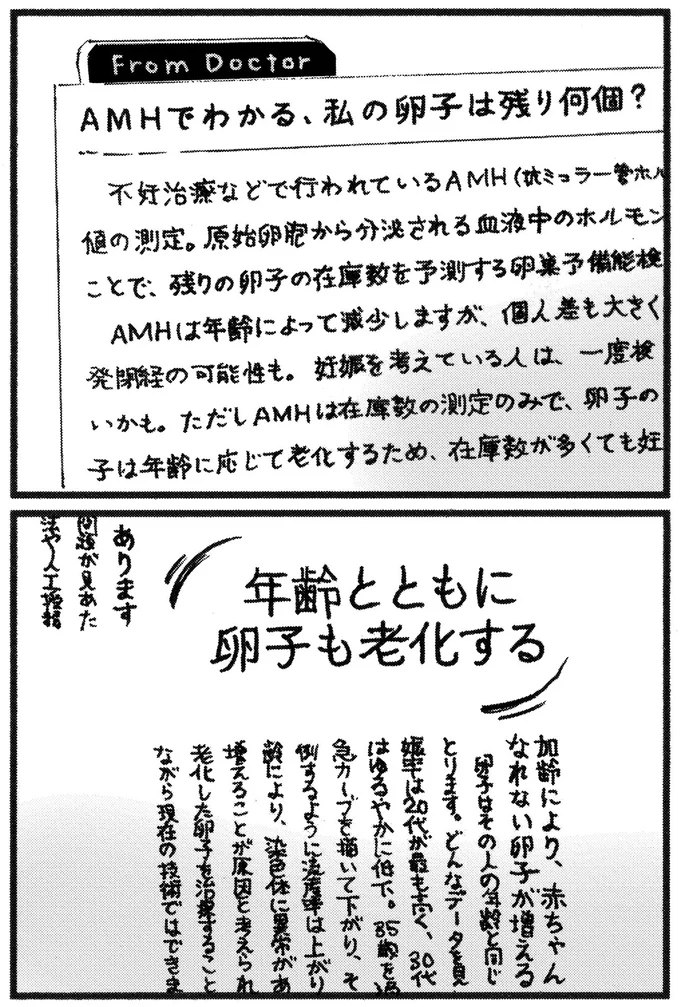 From Doctor
AMHでわかる、私の卵子は残り何個？
不妊治療などで行われているAMH（抗ミュラー管ホル
値の測定。原始卵胞から分泌される血液中のホルモン
ことで、残りの卵子の在庫数を予測する卵巣予備能検
AMHは年齢によって減少しますが、個人差も大きく
発閉経の可能性も。妊娠を考えている人は、一度検
いかも。ただしAMHは在庫数の測定のみで、卵子の
子は年齢に応じて老化するため、在庫数が多くても妊
年齢とともに
卵子も老化する
加齢により、赤ちゃん
なれない卵子が増える
卵子はその人の年齢と同じ
とります。どんなデータを見
娠率は20代が最も高く、30代
はゆるやかに低下。35歳を過
急カーブを描いて下がり、そ
例するように流産率は上がり
齢により、染色体に異常があ
増えることが原因と考えられ
老化した卵子を治療すること
ながら現在の技術ではできま
あります
問題が見あた
法や人工授精